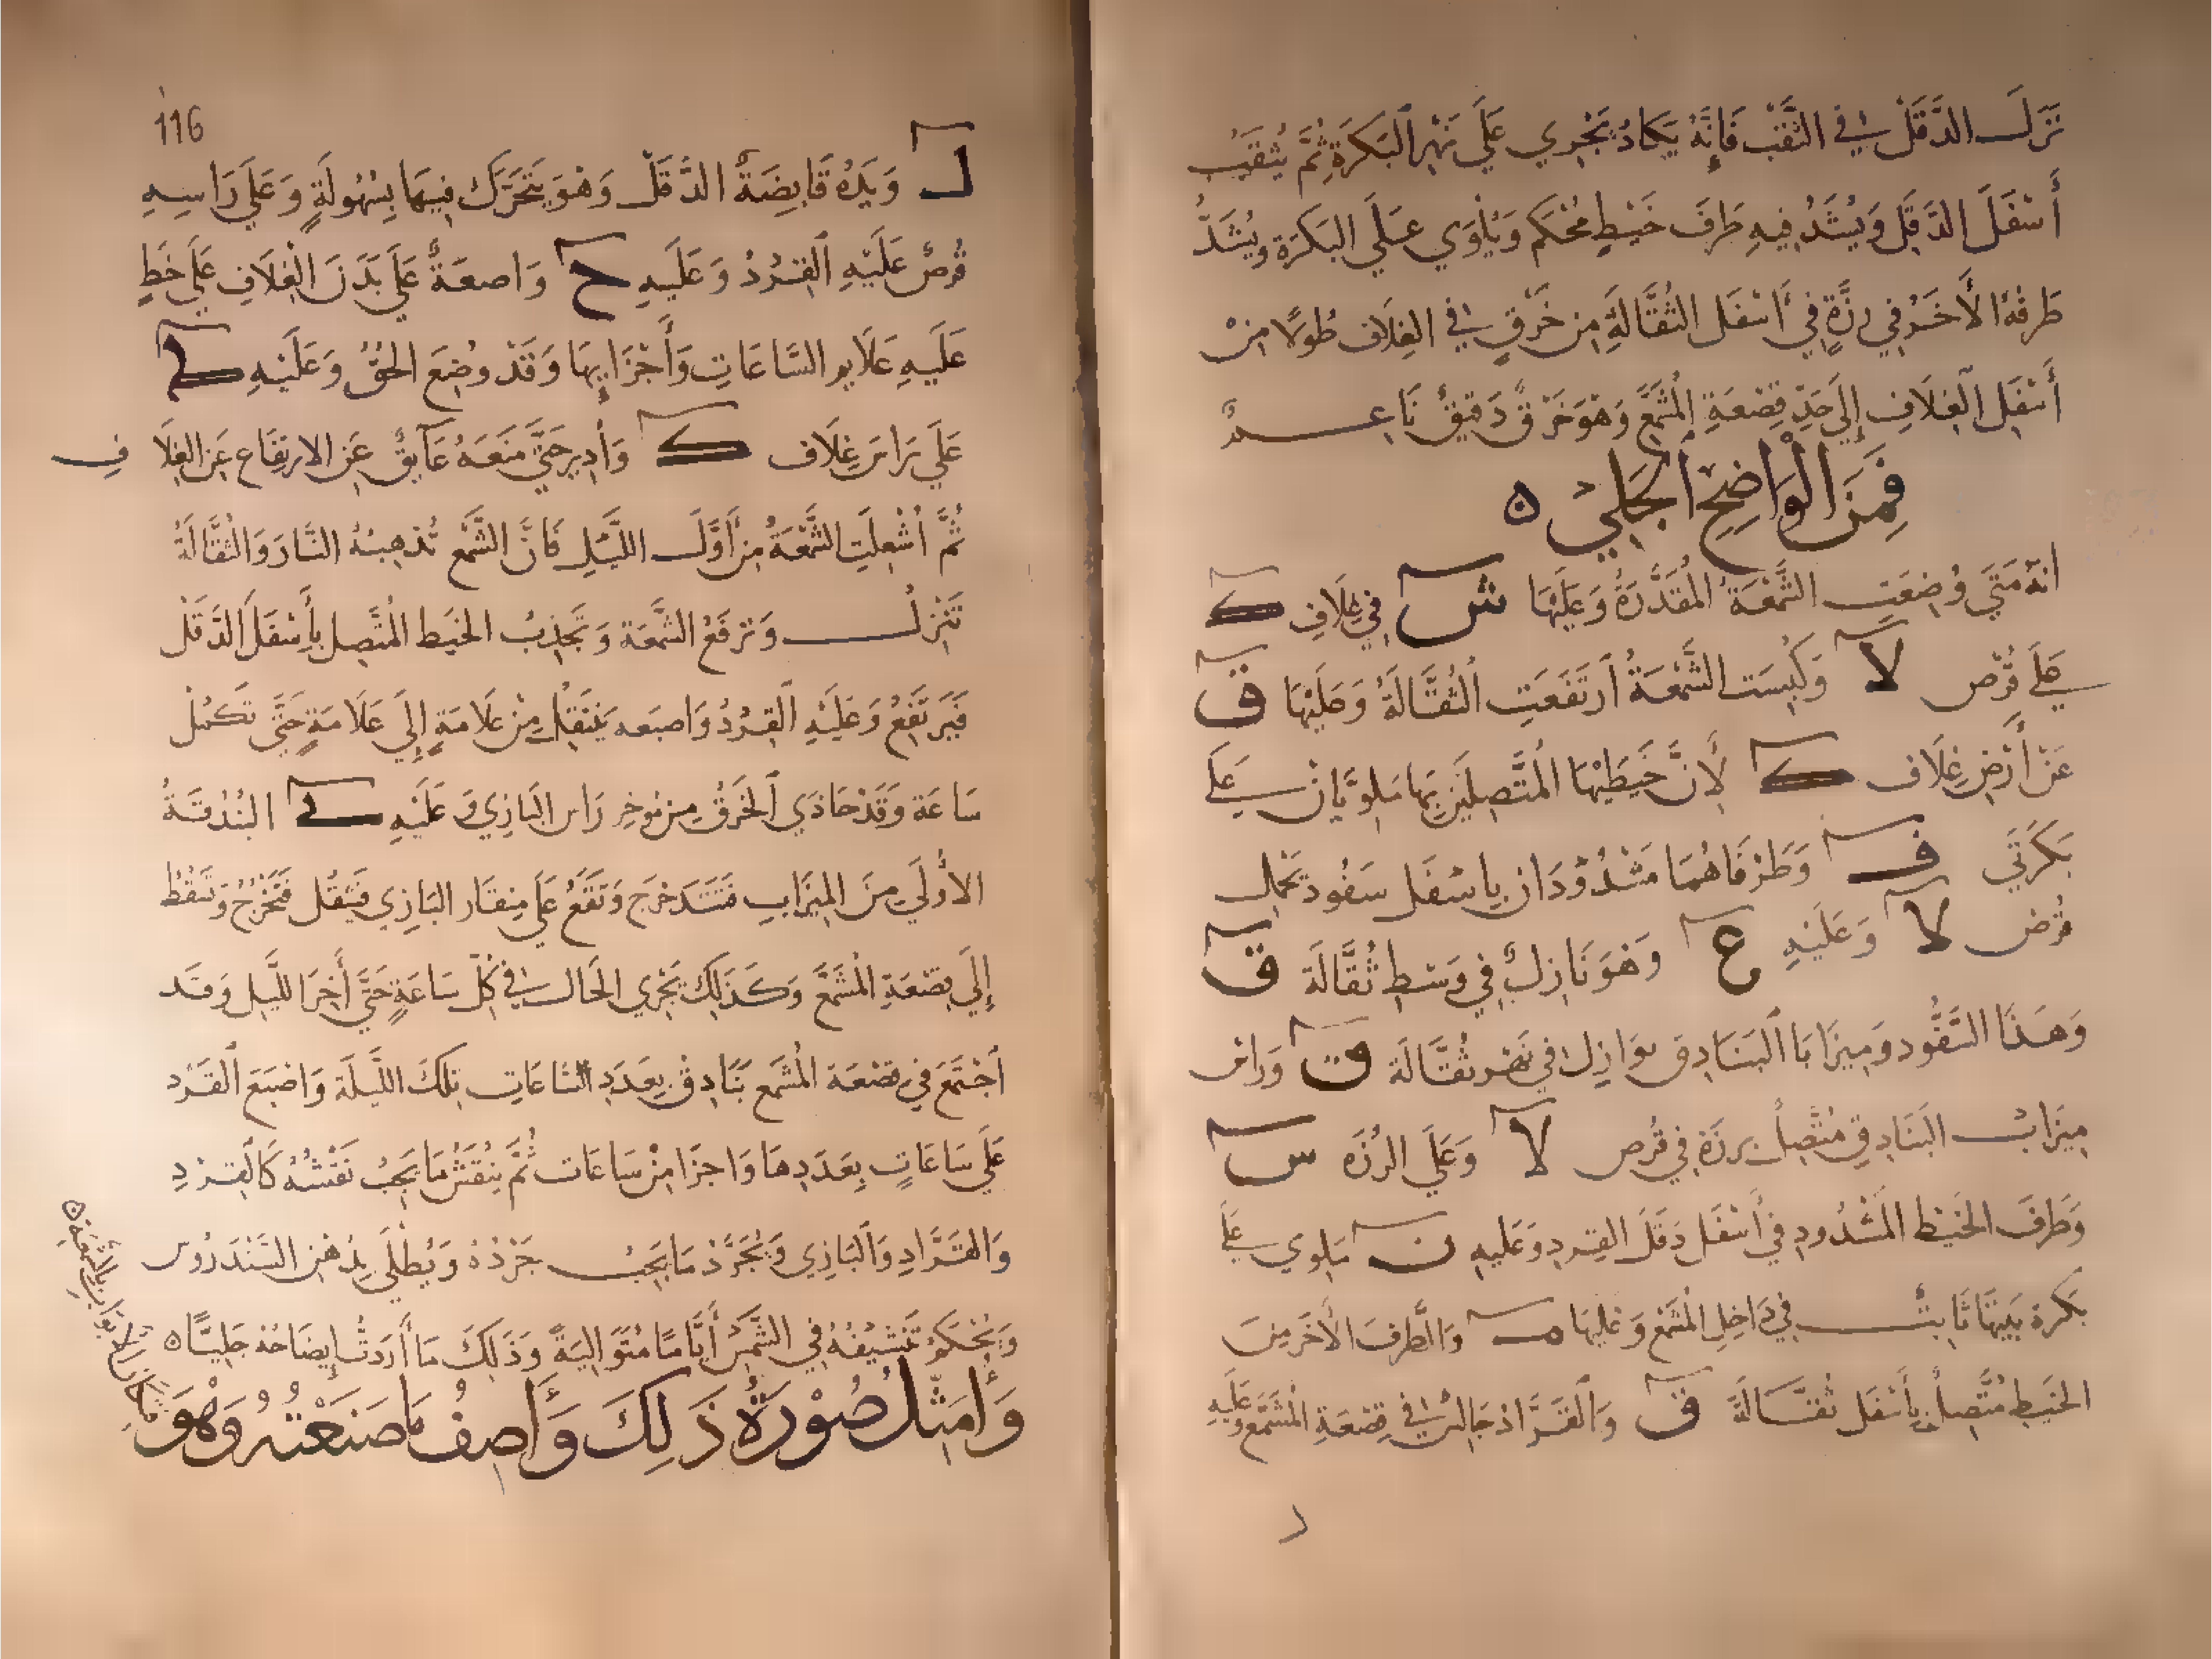 نَزَلَ الدَّقَلُ فِي الثَّقْبِ فَإِنَّهُ يَكَادُ يَجْرِي عَلَى نَهْرِ الْبَكَرَةِ ثُمَّ يُثقَبُ
أَسْفَلَ الدَّقَلِ وَيُشَدُّ فِيهِ طَرَفَ خَيْطٍ مُحْكَم وَيُلْوَي عَلَي البَكَرَة وَيُشَدُّ
طَرَفُهُ الأَخَرُ فِي رزَّةٍ فِي أَسْفَلِ الثُّقَّالَةِ مِن خَرْقٍ فِي الغِلَاف طُولًا مِنْ
أَسْفَلِ الغِلَافِ إِلَى حَدِّ قِصْعَةِ الْمُشَمَّعِ وَهُوَ خَرْقٌ دَقِيقٌ نَاعِمٌ
فَمِنَ الْوَاضِحِ الجَلِيّ ه
انَهُ مَتَى وُضِعَتِ الشَّمْعَةُ الْمُقَدَّرَةُ وَعَلَيْهَا ش فِي غِلَافِ ك
عَلَى قُرْصِ لا وَكُبِسَت الشَّمْعَةُ ارتَفَعَتِ الثُّقَّالَةُ وَعَلَيْهَا ق
عَنْ أَرْضِ غِلَاف ك لِأَنَّ خَيْطَيْهَا الْمُتَّصِلَيْنِ بِهَا مَلوِيَّانِ عَلَى
بَكَرَتَي ف وَطَرَفَاهُمَا مَشْدُوْدَانِ بِاسْفَلِ سَفُود يَحْمِلُ
قُرْص لا وَعَلَيْهِ ع وَهُوَ نَازِلٌ فِي وَسْطِ ثُقَّالَة ق
وَهَذَا السَّفُّود وَمِيزَابَا الْبَنَادِق نوَازِل فِي نَهْر ثُقَّالَة ق وَرَاس
مِيزَابِ البَنَادِقِ مُتَّصِلٌ بِرزة فِي قُرص لا وَعَلَى الرُّزَه س
وَطَرَفَ الخَيْط الْمَشْدُودِ فِي أَسْفَلِ دَقَلَ القِرد وَعَليهِ ن مَلوي عَلَى
بَكَرة بَيْتهَا ثَابِتٌ فِي دَاخِلِ الْمُشَمَّعِ وَعَليهَا م وَالطَّرفَ الأَخَر مِنَ
الخَيطِ مُتَّصِلٌ بِأَسْفَلِ ثُقَّالَةَ ق وَالْقَرَّادُ جَالِسٌ فِي قِصْعَةِ الْمُشَمَّعِ وَعَلَيْهِ
116
ل وَيَدُهُ قَابِضَةٌ الدَّقَلَ وَهُوَ يَتَحَرَّك فِيهَا بِسُهُولَةٍ وَعَلَى رَاسِهِ
قُرصٌ عَلَيْهِ القِرْدُ وَعَلَيهِ ح وَاصبعَهُ عَلَى بَدَنَ الغِلَافِ عَلَى خَطٍ
عَلَيهِ عَلَايم السَّاعَاتِ وَأَجْزَايِهَا وَقَدْ وُضِعَ الحُقُّ وَعَلَيْهِ ط
عَلَى رَاسَ غِلَاف ك وَأُدِيرَ حَتَّى مَنَعَهُ عَايقٌ عَن الارتِفَاع عَن الغِلَافِ
ثُمَّ أُشْعِلَتِ الشَّمْعَةُ مِن أَوَّلِ اللَّيْلِ فَانَّ الشَّمْع تُذهِبُهُ النَّارَ وَالثُّقَّالَةُ
تَنْزِلُ وَتَرفَعُ الشَّمعَة وَتَجْذِبُ الخيَط الْمُتَّصِل بِأَسْفَلَ الدَّقَلْ
فَيَرتَفِعُ وَعَلَيْهِ القِرْدُ وَاصبَعه يَنتَقِلُ مِنْ عَلَامَةٍ إِلَى عَلَامَةٍ حَتَّى تَكْمُلْ
سَاعَة وَقَدْ حَاذَي الخَرْقُ مِن مُوخِر رَاس البَازِي وَعَلَيْهِ ط البُنْدُقَةُ
الأُولَى مِنَ المِيزَابِ فَتَتَدَحْرَج وَتَقَعُ عَلَى مِنقَار البَازِي فَيَثقُل فَتَخْرُجُ وَتَسْقُطُ
إِلَى قصْعَةِ الْمُشَمَّعِ وَكَذَلِكَ يَجْرِي الحَالُ فِي كُلّ سَاعَةٍ حَتَّى أَخِرَ اللَّيلِ وَقَد
اجْتَمَعَ فِي قصْعَة الْمُشَمع بَنَادِقُ بِعَدَدِ السَّاعَاتِ تِلكَ اللَّيلَة وَاصْبَع القَرْد
عَلَى سَاعَاتٍ بِعَدَدِهَا وَاجزَا مِنْ سَاعَات ثُمَّ يُنقَشُ مَا يَجِبُ نَقْشُهُ كَالقِردِ
وَالقَرَّادِ وَالبَازِي وَيُجَرَّدْ مَا يَجِبُ جَرْدُهُ وَيُطْلَى بِدُهْنِ السَّنْدَرُوس
وَيُحْكَمُ تَنْشِيفُهُ فِي الشَّمْسِ أَيَّامًا مُتَوَالِيَةً وَذَلِكَ مَا أَرَدتُ إِيضَاحُهُ جَلِيًّا ه
وَأُمَثِّلُ صُوْرَةَ ذَلِكَ وَأَصِفُ مَا صَنَعْتُهُ وَهْوَ